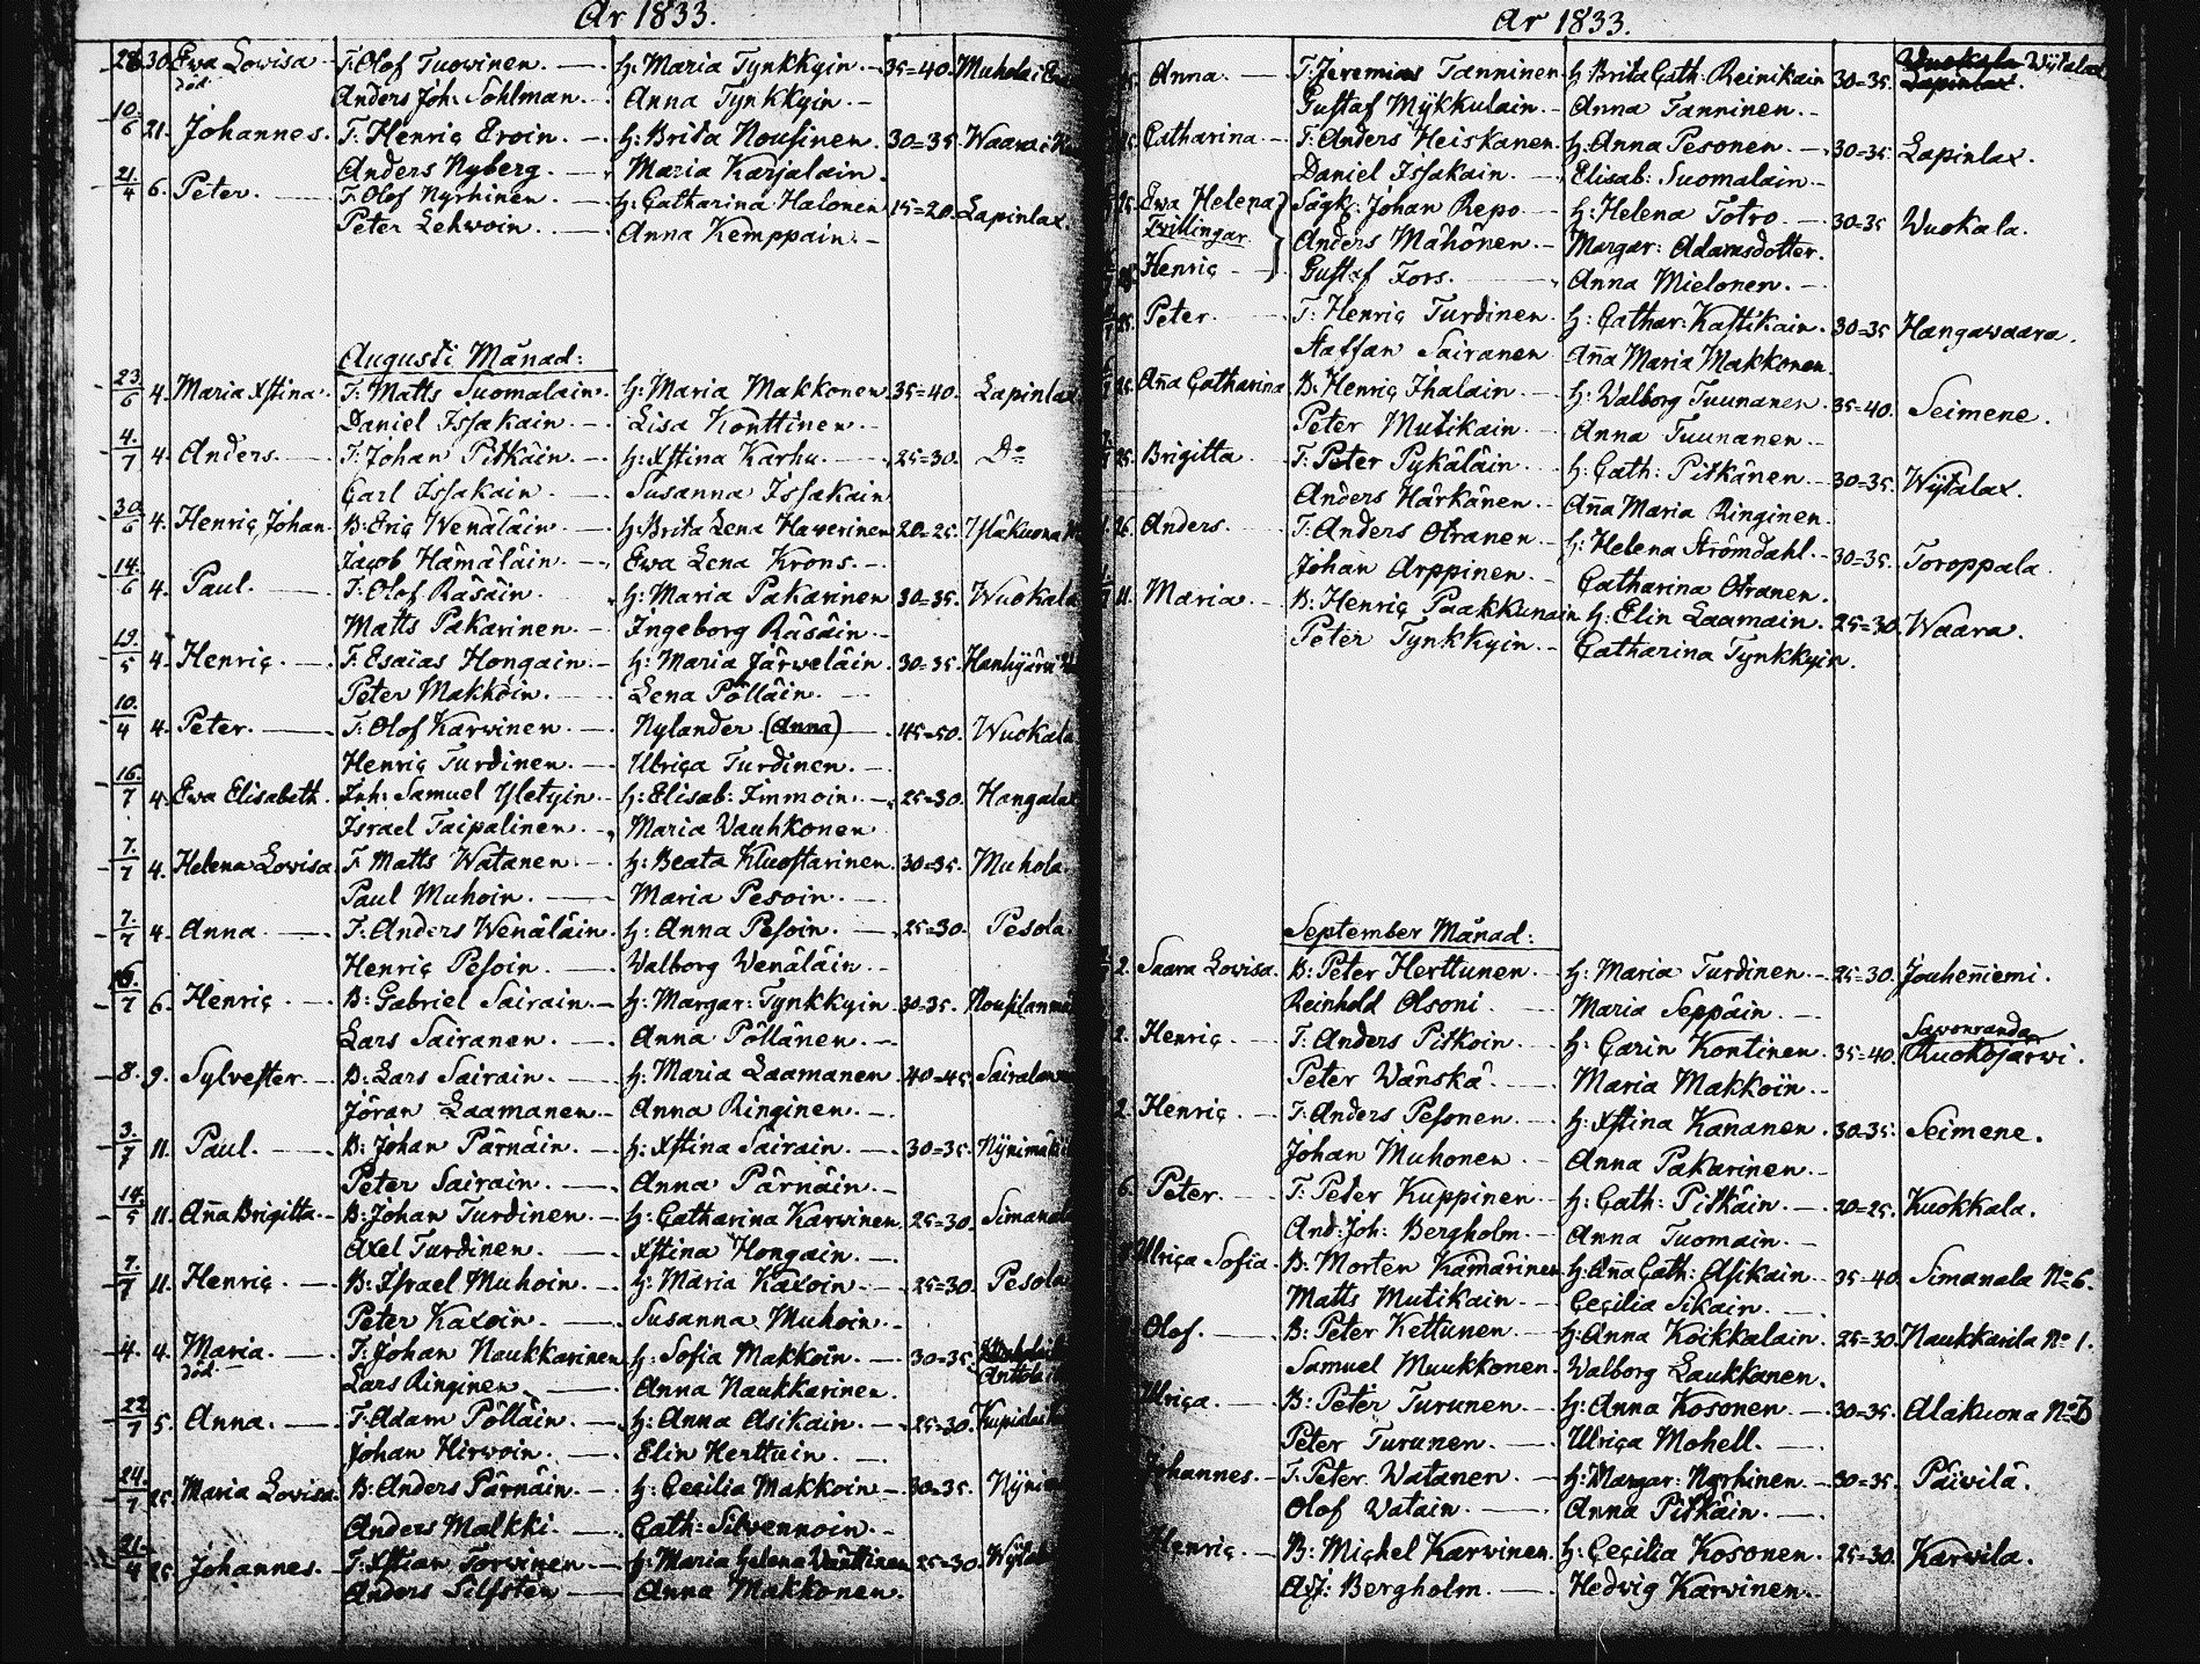 År 1833.
28 30 Ewa Lowisa T: Olof Tuowinen. H: Maria Tynkkyin 35=40. Muhola i
död Anders Joh: Sohlman. Anna Tynkkyin.
10./6 21. Johannes. T: Henric Eroin. H: Brita Nousinen. 30=35. Waara i
Anders Nyberg. Maria Karjalain.
21./4 6. Peter. T: Olof Nyrhinen. H: Catharina Halonen 15=20. Lapinlax.
Peter Lehwoin. Anna Kemppain.
Augusti Månad:
23/6 4. Maria Xstina. T: Matts Suomalain. H: Maria Makkonen 35=40. Lapinlax
Daniel Issakain. Lisa Konttinen.
4./7 4. Anders. T: Johan Pitkäin. H: Xstina Karhu. 25=30. Do
Carl Issakain. Susanna Issakain
30./6 4. Henric Johan. B: Eric Wenäläin. H: Brita Lena Haverinen 20=25. Yläkuona
Jacob Hämäläin. Ewa Lena Krons.
14./6 4. Paul. T: Olof Räsäin. H: Maria Pakarinen 30=35. Wuokala
Matts Pakarinen. Ingeborg Räsäin.
19./5 4. Henric. T: Esaias Hongain. H: Maria Järweläin. 30=35. Hanhijärvi
Peter Makkoin. Lena Pölläin.
10./4 4. Peter. T: Olof Karwinen. Nylander (Anna) 45=50. Wuokala
Henric Turdinen. Ulrica Turdinen.
16./7 4. Ewa Elisabeth. Inh: Samuel Yletyin. H: Elisab: Immoin. 25=30. Hangalax
Israel Taipalinen. Maria Vauhkonen
7./7 4. Helena Lovisa T: Matts Watanen. H: Beata Kluostarinen. 30=35. Muhola.
Paul Muhoin. Maria Pesoin.
7./7 4. Anna. T: Anders Wenäläin. H: Anna Pesoin. 25=30. Pesola.
Henric Pesoin. Walborg Wenäläin.
6./7 6. Henric. B: Gabriel Sairain. H: Margar: Tynkkyin 30=35. Nousilanmä
Lars Sairanen. Anna Pöllänen.
8. 9. Sylvester. B: Lars Sairain. H: Maria Laamanen 40=45. Sairalan
Jöran Laamanen. Anna Ringinen.
3./7 11. Paul. B: Johan Pärnäin. H: Xstina Sairain. 30=35. Nynimäki
Peter Sairain. Anna Pärnäin.
14./5 11. Anna Brigitta. B: Johan Turdinen. H: Catharina Karwinen 25=30. Simanala
Axel Turdinen. Xstina Hongain.
7./7 11. Henric. B: Israel Muhoin. H: Maria Kaxoin. 25=30. Pesola
Peter Kaxoin. Susanna Muhoin.
4. 4. Maria. T: Johan Naukkarinen H: Sofia Makkoin. 30=35
död Lars Ringinen. Anna Naukkarinen. Anttola
22/7 5. Anna. T: Adam Pölläin. H: Anna Asikain. 25=30. Kupiala i
Johan Hirwoin. Elin Herttuin.
24./7 25. Maria Lovisa. B: Anders Pärnäin. H: Cecilia Makkoin 30=35. Nynim
Anders Malkki. Cath: Silvennoin.
21./4 25. Johannes. T: Xstian Torwinen H: Maria Helena Wänttinen 25=30. Wytal
Anders Silfsten Anna Makkonen.
År 1833.
25. Anna. T: Jeremias Tanninen. H: Brita Cath: Reinikain 30=35. Wuokala Wytalax
Gustaf Mykkulain. Anna Tanninen. Lapinlax.
25. Catharina. T: Anders Heiskanen. H: Anna Pesonen. 30=35. Lapinlax.
Daniel Issakain. Elisab: Suomalain.
25. Ewa Helena Sågk: Johan Repo H: Helena Totro. 30=35 Wuokala.
Tvillingar Anders Mähönen. Margar: Adamsdotter.
Henric Gustaf Fors. Anna Mielonen.
25. Peter. T: Henric Turdinen. H: Cathar: Kastikain. 30=35 Hangawaara.
Staffan Sairanen Anna Maria Makkonen.
25. Anna Catharina B: Henric Ihalain. H: Walborg Tuunanen. 35=40. Seimene.
Peter Mutikain. Anna Tuunanen.
25. Brigitta T: Peter Pykäläin. H: Cath: Pitkänen. 30=35. Wytalax.
Anders Härkänen. Anna Maria Ringinen.
26. Anders. T: Anders Otranen. H: Helena Strömdahl. 30=35. Toroppala.
Johan Arppinen. Catharina Otranen.
11. Maria. B: Henric Paakkunain H: Elin Laamain. 25=30. Waara.
Peter Tynkkyin. Catharina Tynkkyin.
September Månad:
2. Saara Lovisa. B: Peter Herttunen. H: Maria Turdinen. 25=30. Jouhenniemi.
Reinhold Olsoni. Maria Seppäin.
2. Henric. T: Anders Pitkoin. H: Carin Kontinen. 35=40. Savonranda Ruokojärwi.
Peter Wänskä. Maria Makkoin.
2. Henric. T: Anders Pesonen. H: Xstina Kananen. 30=35. Seimene.
Johan Muhonen. Anna Pakarinen.
6. Peter. T: Peter Kuppinen. H: Cath: Pitkäin. 20=25. Kuokkala.
And: Joh: Bergholm. Anna Tuomain.
Ulrica Sofia. B: Morten Kämärinen H: Anna Cath: Asikain. 35=40. Simanala No 6.
Matts Mutikain. Cecilia Sikain.
Olof. B: Peter Kettunen. H: Anna Koikkalain. 25=30. Naukkarila No 1.
Samuel Muukkonen. Walborg Laukkanen.
Ulrica. B: Peter Turunen. H: Anna Kosonen. 30=35. Alakuona No
Peter Turunen. Ulrica Mohell.
Johannes. T: Peter Watanen. H: Margar: Nyrhinen. 30=35. Päiwilä.
Olof Watain. Anna Pitkäin.
Henric. B: Michel Karwinen. H: Cecilia Kosonen. 25=30. Karvila.
Adj: Bergholm. Hedvig Karwinen.